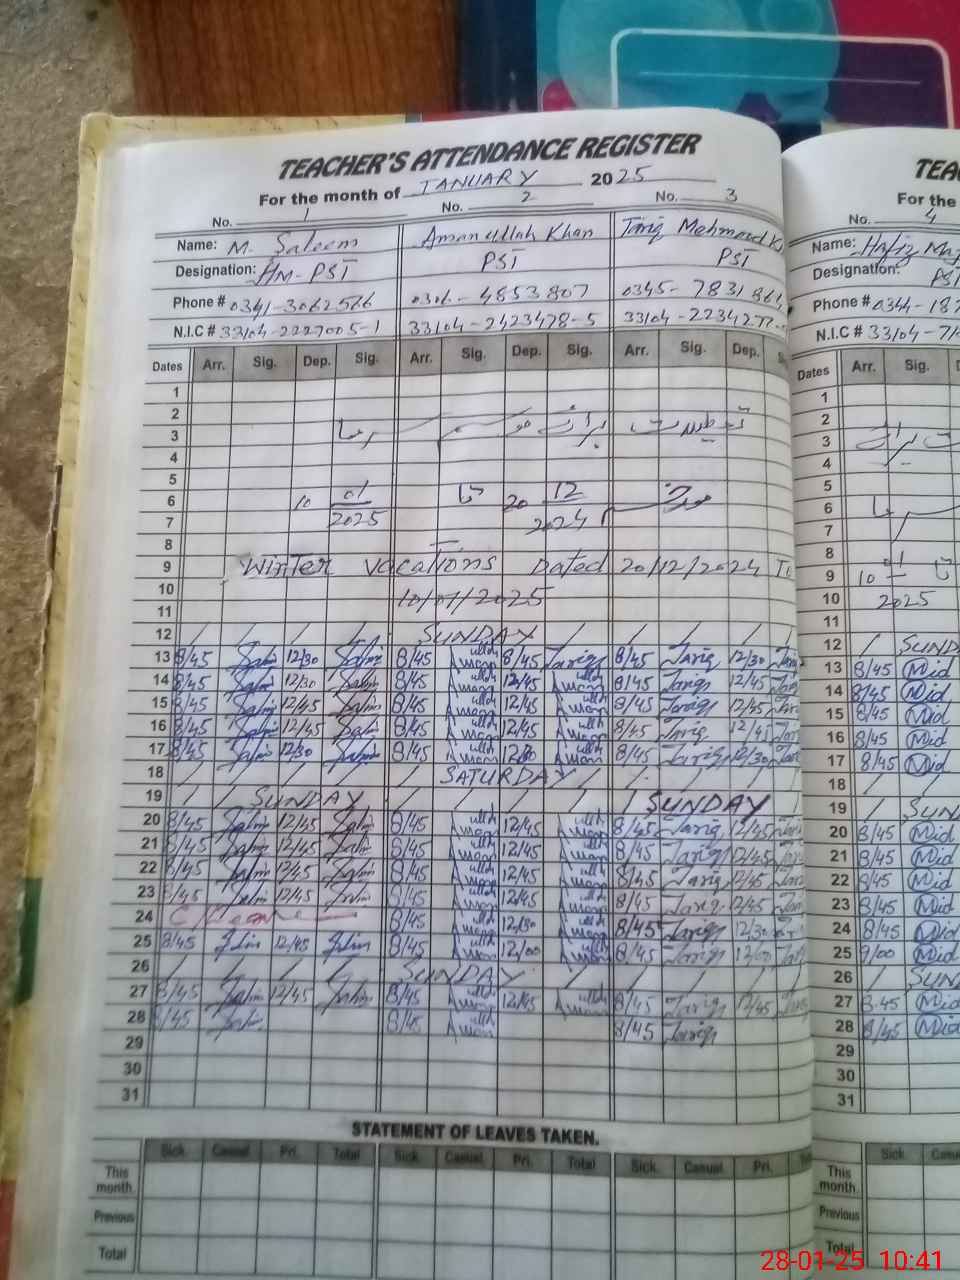 TEACHER'S ATTENDANCE REGISTER
For the month of JANUARY 2025
No. 1 No. 2 No. 3
Name: M. Saleem Aman ullah Khan Tariq Mehmood K
Designation: HM-PST PST PST
Phone # 0341-3062566 0306-4853807 0345-7831864
N.I.C # 33104-2227005-1 33104-2423478-5 33104-2234277-
Dates Arr. Sig. Dep. Sig. Arr. Sig. Dep. Sig. Arr. Sig. Dep. Si
1
2
3
4
5
6 10 01/2025 تا 20 12/2024
7
8
9 Winter Vacations Dated 20/12/2024 To
10 10/01/2025
11
12 / / / / SUNDAY / / / /
13 8/45 Salim 12/30 Salim 8/45 Aman ullah 8/45 Tariq 8/45 Tariq 12/30 Tariq
14 8/45 Salim 12/30 Salim 8/45 Aman ullah 12/45 Aman ullah 8/45 Tariq 12/45 Tariq
15 8/45 Salim 12/45 Salim 8/45 Aman ullah 12/45 Aman ullah 8/45 Tariq 12/45 Tar
16 8/45 Salim 12/45 Salim 8/45 Aman ullah 12/45 Aman ullah 8/45 Tariq 12/41 Tar
17 8/45 Salim 12/30 Salim 8/45 Aman ullah Aman ullah 8/45 Tariq 12/30 Tar
18 / / / / / SATURDAY / / / /
19 / / SUNDAY / / / / / / SUNDAY
20 8/45 Salim 12/45 Salim 8/45 Aman ullah 12/45 Aman ullah 8/45 Tariq 12/45 Tari
21 8/45 Salim 12/45 Salim 8/45 Aman ullah 12/45 Aman ullah 8/45 Tariq 12/45 Tari
22 8/45 Salim 12/45 Salim 8/45 Aman ullah 12/45 Aman ullah 8/45 Tariq 12/45 Tari
23 8/45 Salim 12/45 Salim 8/45 Aman ullah 12/45 Aman ullah 8/45 Tariq 12/45 Tar
24 C/Leave 8/45 Aman ullah 12/30 Aman ullah 8/45 Tariq 12/30
25 8/45 Salim 12/45 Salim 8/45 Aman ullah 12/00 Aman ullah 8/45 Tariq 12/00 Tar
26 / / / / / SUNDAY / / / /
27 8/45 Salim 12/45 Salim 8/45 Aman ullah 12/45 Aman ullah 8/45 Tariq 12/45 Tar
28 8/45 Salim 8/45 Aman ullah 8/45 Tariq
29
30
31
STATEMENT OF LEAVES TAKEN.
Sick. Casual. Pri. Total Sick. Casual. Pri. Total Sick. Casual. Pri.
This month.
Previous
Total
TEA
For the
No. 4
Name: Hafiz
Designation: PST
Phone # 0344-187
N.I.C # 33104-71
Dates Arr. Sig. D
1
2
3
4
5
6
7
8
9 10 01 تا
10 2025
11
12 / SUND
13 8/45 Mid
14 8/45 Mid
15 8/45 Mid
16 8/45 Mid
17 8/45 Mid
18 / /
19 / SUN
20 8/45 Mid
21 8/45 Mid
22 8/45 Mid
23 8/45 Mid
24 8/45 Mid
25 9/00 Mid
26 / SUN
27 8.45 Mid
28 8/45 Mid
29
30
31
Sick. Casu
This month.
Previous
Total
28-01-25 10:41